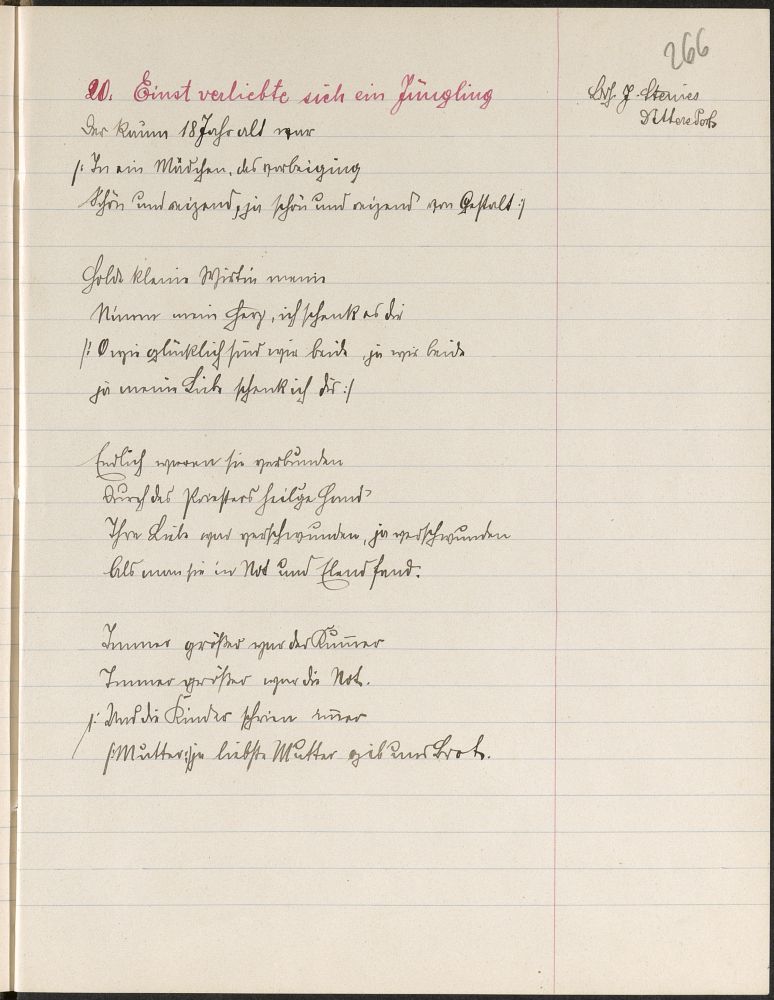 266
20. Einst verliebte sich ein Jüngling
Der kaum 18 Jahr alt war
/: In ein Mädchen, das vorbeiging
Schön und reizend, ja schön und reizend von Gestalt :/
Holde kleine Wirtin meine
Nimm mein Herz, ich schenk es dir
/: O wie glücklich sind wir beide, ja wir beide
ja meine Liebe schenk ich dir :/
Endlich waren sie verbunden
Durch des Priesters heilge Hand
Ihre Liebe war verschwunden, ja verschwunden
Als man sie in Not und Elend fand.
Immer größer war der Kum̅er
Immer größer war die Not.
/: Und die Kinder schrien im̅er
/: Mutter :/ ja liebste Mutter gib uns Brot.
J.